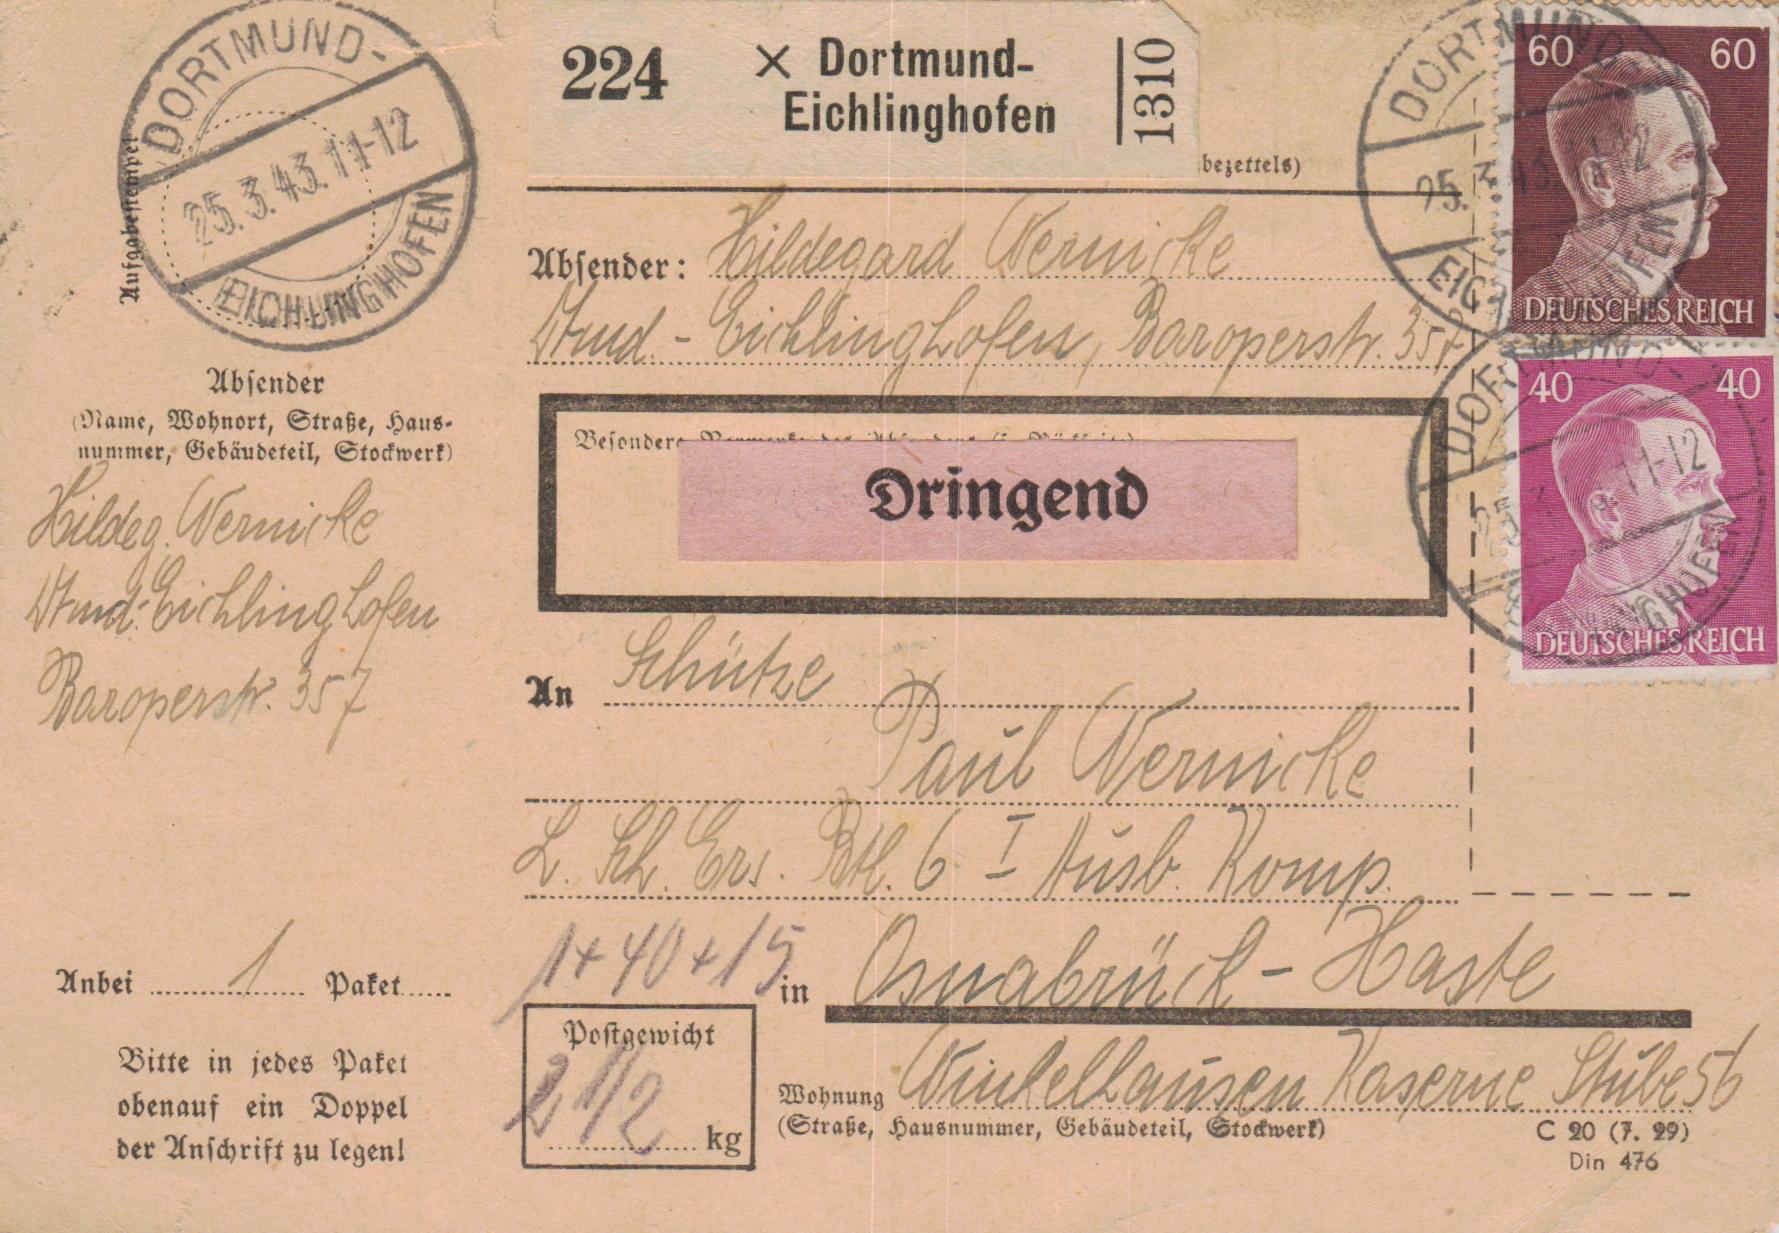 DORTMUND-
25.3.43.11-12
EICHLINGHOFEN
Aufgabestempel
224 × Dortmund-
Eichlinghofen
1310
bezettels)
DORTMUND
25.3.43.11-12
EICHLINGHOFEN
60 60
DEUTSCHES REICH
Absender: Hildegard Wernicke
Dtmd.-Eichlinghofen, Baroperstr. 357
DORTMUND-
25.3.43.11-12
EICHLINGHOFEN
40 40
DEUTSCHES REICH
Absender
(Name, Wohnort, Straße, Haus-
nummer, Gebäudeteil, Stockwerk)
Hildeg. Wernicke
Dtmd.-Eichlinghofen
Baroperstr. 357
Besondere Vermerke des Absenders (s. Rückseite)
Dringend
An Schütze
Paul Wernicke
L. Sch. Ers. Btl. 6 I Ausb. Komp.
1+40+15
in Osnabrück-Haste
Anbei 1 Paket
Bitte in jedes Paket
obenauf ein Doppel
der Anschrift zu legen!
Postgewicht
2 1/2 kg
Wohnung Winkelhausen Kaserne Stube 56
(Straße, Hausnummer, Gebäudeteil, Stockwerk)
C 20 (7. 29)
Din 476